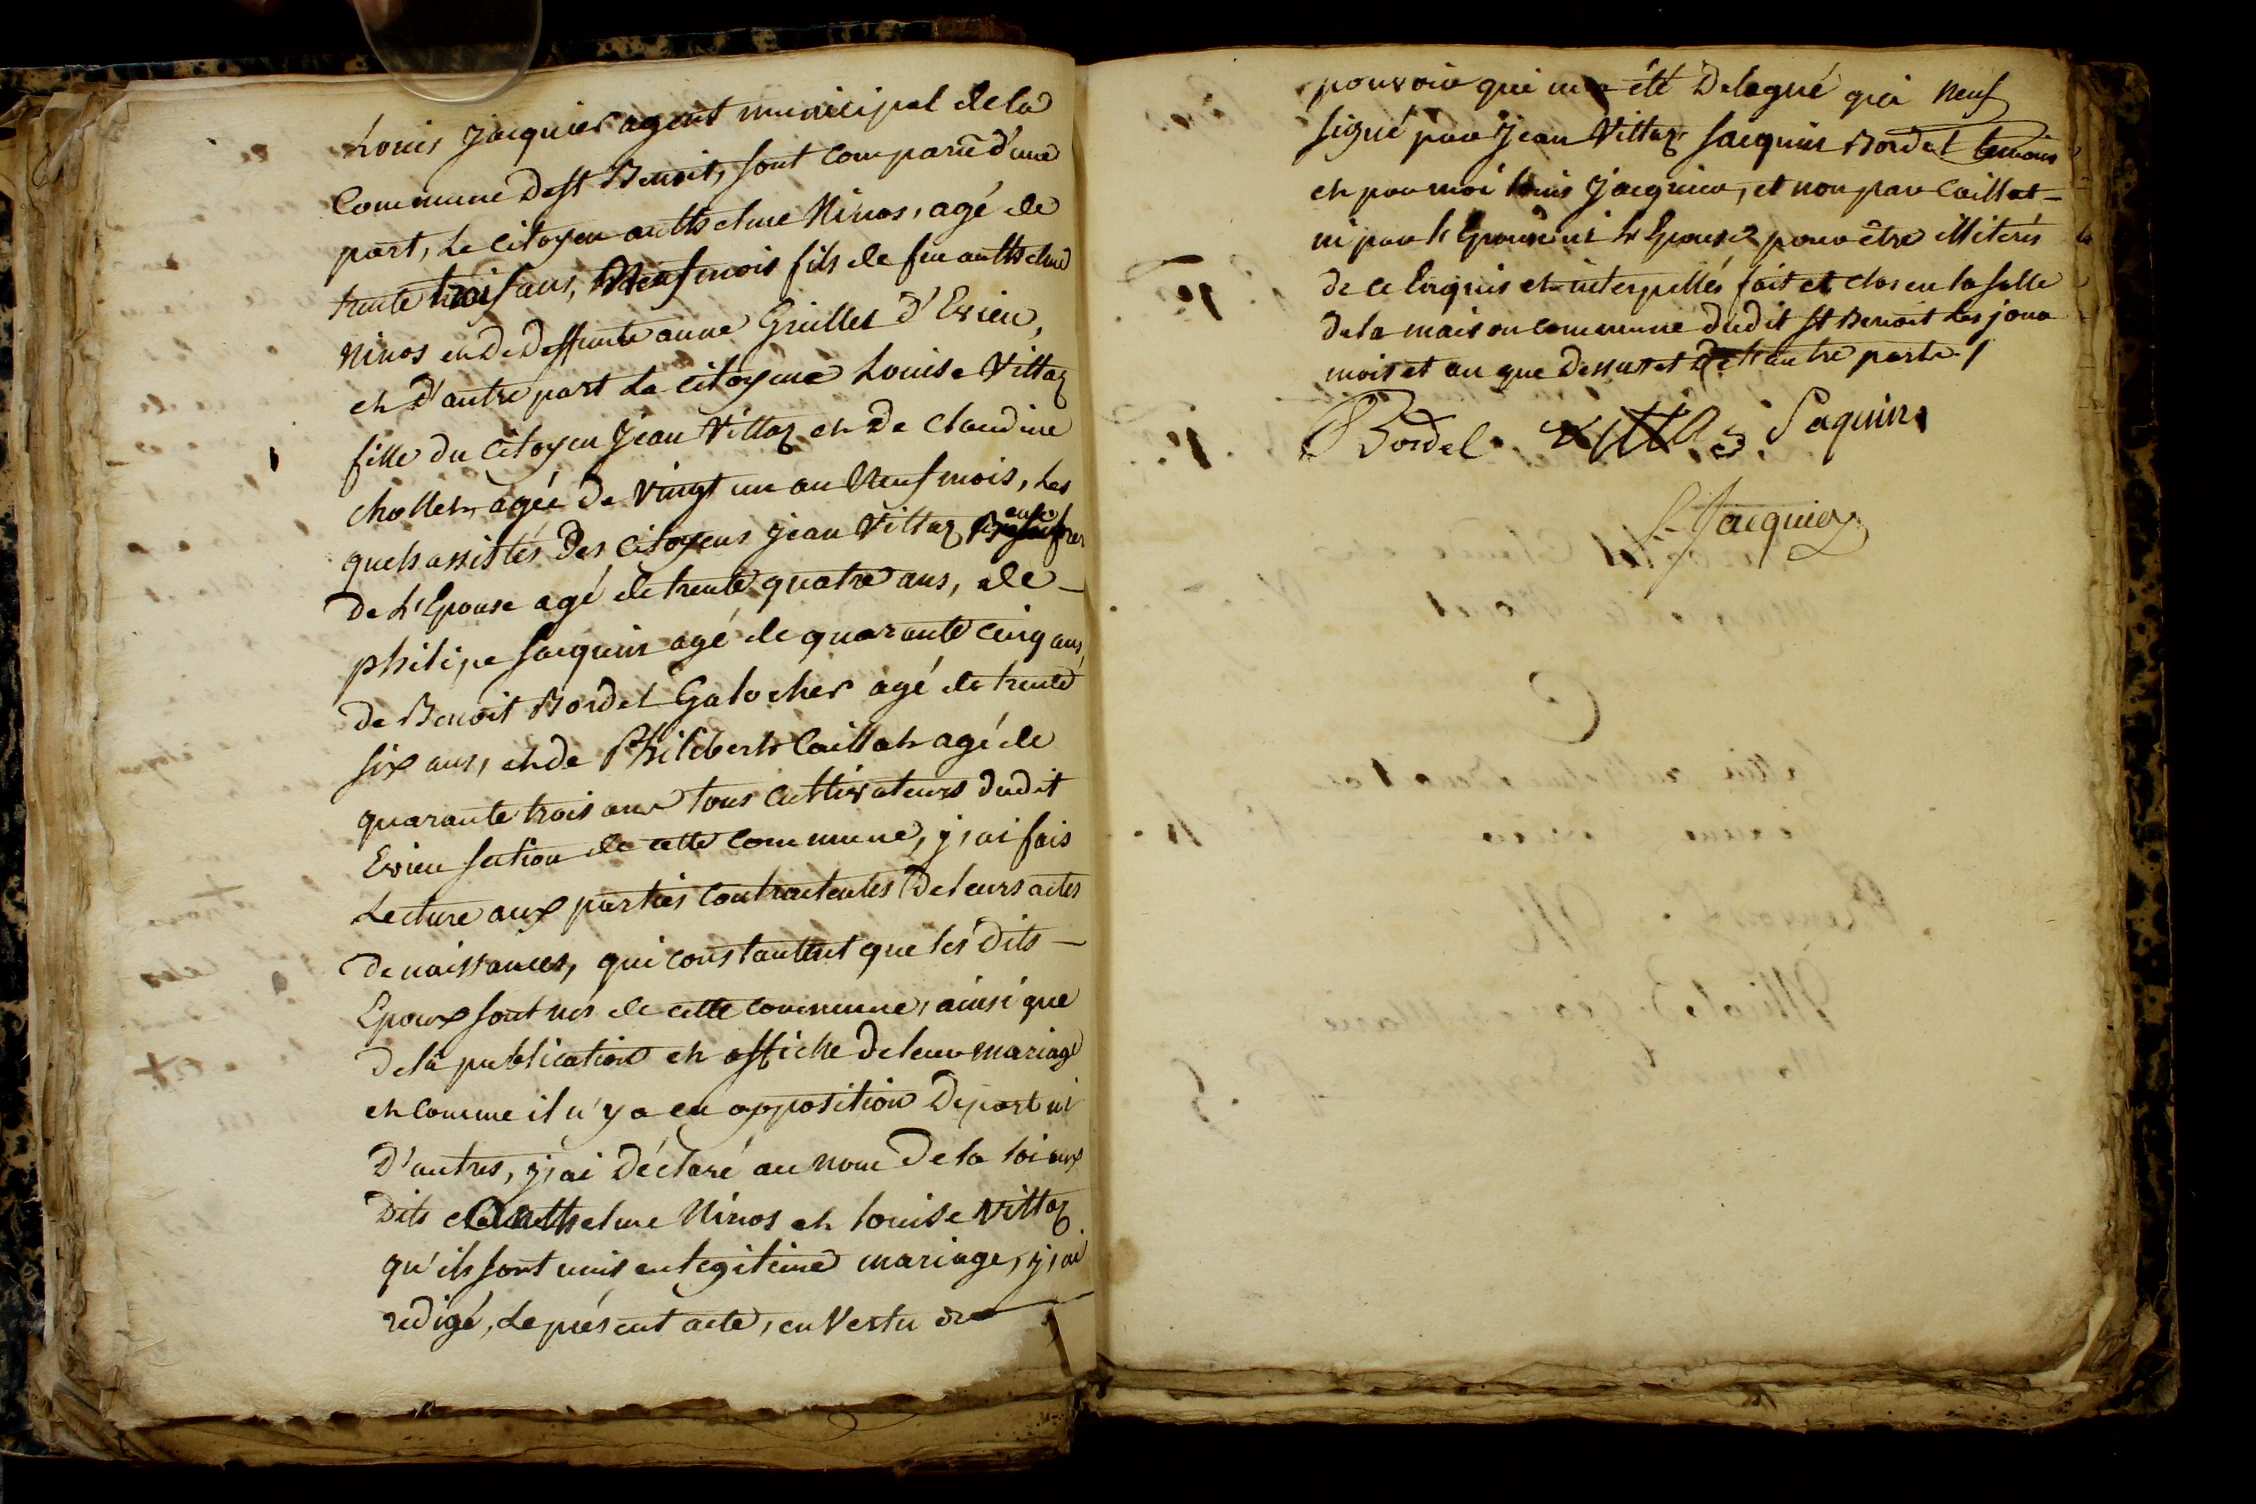 Louis Jacquier agent municipal de la
Commune de St Benoit, sont comparu d'une
part, Le citoyen anthelme Ninos, agé de
trente trois ans, Neuf mois fils de feu anthelme
Ninos et De Deffunte anne Guillet d'Evieu,
et D'autre part La citoyene Louise Vittoz
fille du citoyen Jean Vittoz et De claudine
chollet, agée De vingt un an Neuf mois, Les
quels assistés Des citoyens Jean Vittoz
De L'Epouse agé de trente quatre ans, de –
philipe Saquin agé de quarante cinq ans,
De Benoit Bordel Galocher agé de trente
six ans, et de Philibert Caillat agé de
quarante trois ans tous cultivateurs dudit
Evieu section de cette commune, j'ai fais
Lecture aux parties contractentes De leurs actes
De naissances, qui constantent que les Dits –
Epoux sont nés de cette commune, ainsi que
De la publication et affiche De leur mariage
et comme il n'y a eu opposition De part ni
D'autres, j'ai Déclaré au nom De la loi aux
Dits Anthelme Ninos et Louise Vittoz
qu'ils sont unis en legitime mariage, j'ai
redigé, Le présent acte, en Vertu du
pouvoir qui m'a été Delegué qui Neuf
signé par Jean Vittoz Saequin Bordel temoins
et par moi Louis Jacquier, et non par Caillat –
ni par l'Epoux ni l'Epouse pour être illiterés
de ce Enquis et interpellés fait et clos en la salle
de la maison commune dudit St Benoit Les jour
mois et an que Dessus et De l'autre parte /
Bordel Saquin
L. Jacquier